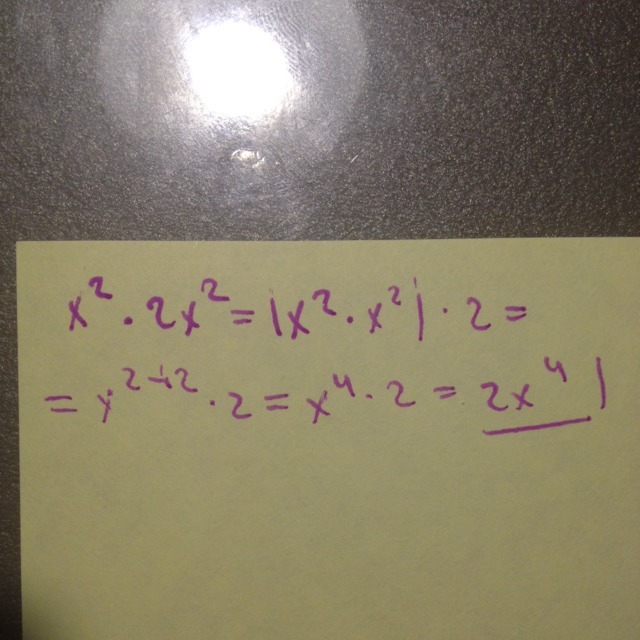 x² · 2x² = |x² · x²| · 2 =
= x²⁺² · 2 = x⁴ · 2 = 2x⁴ |